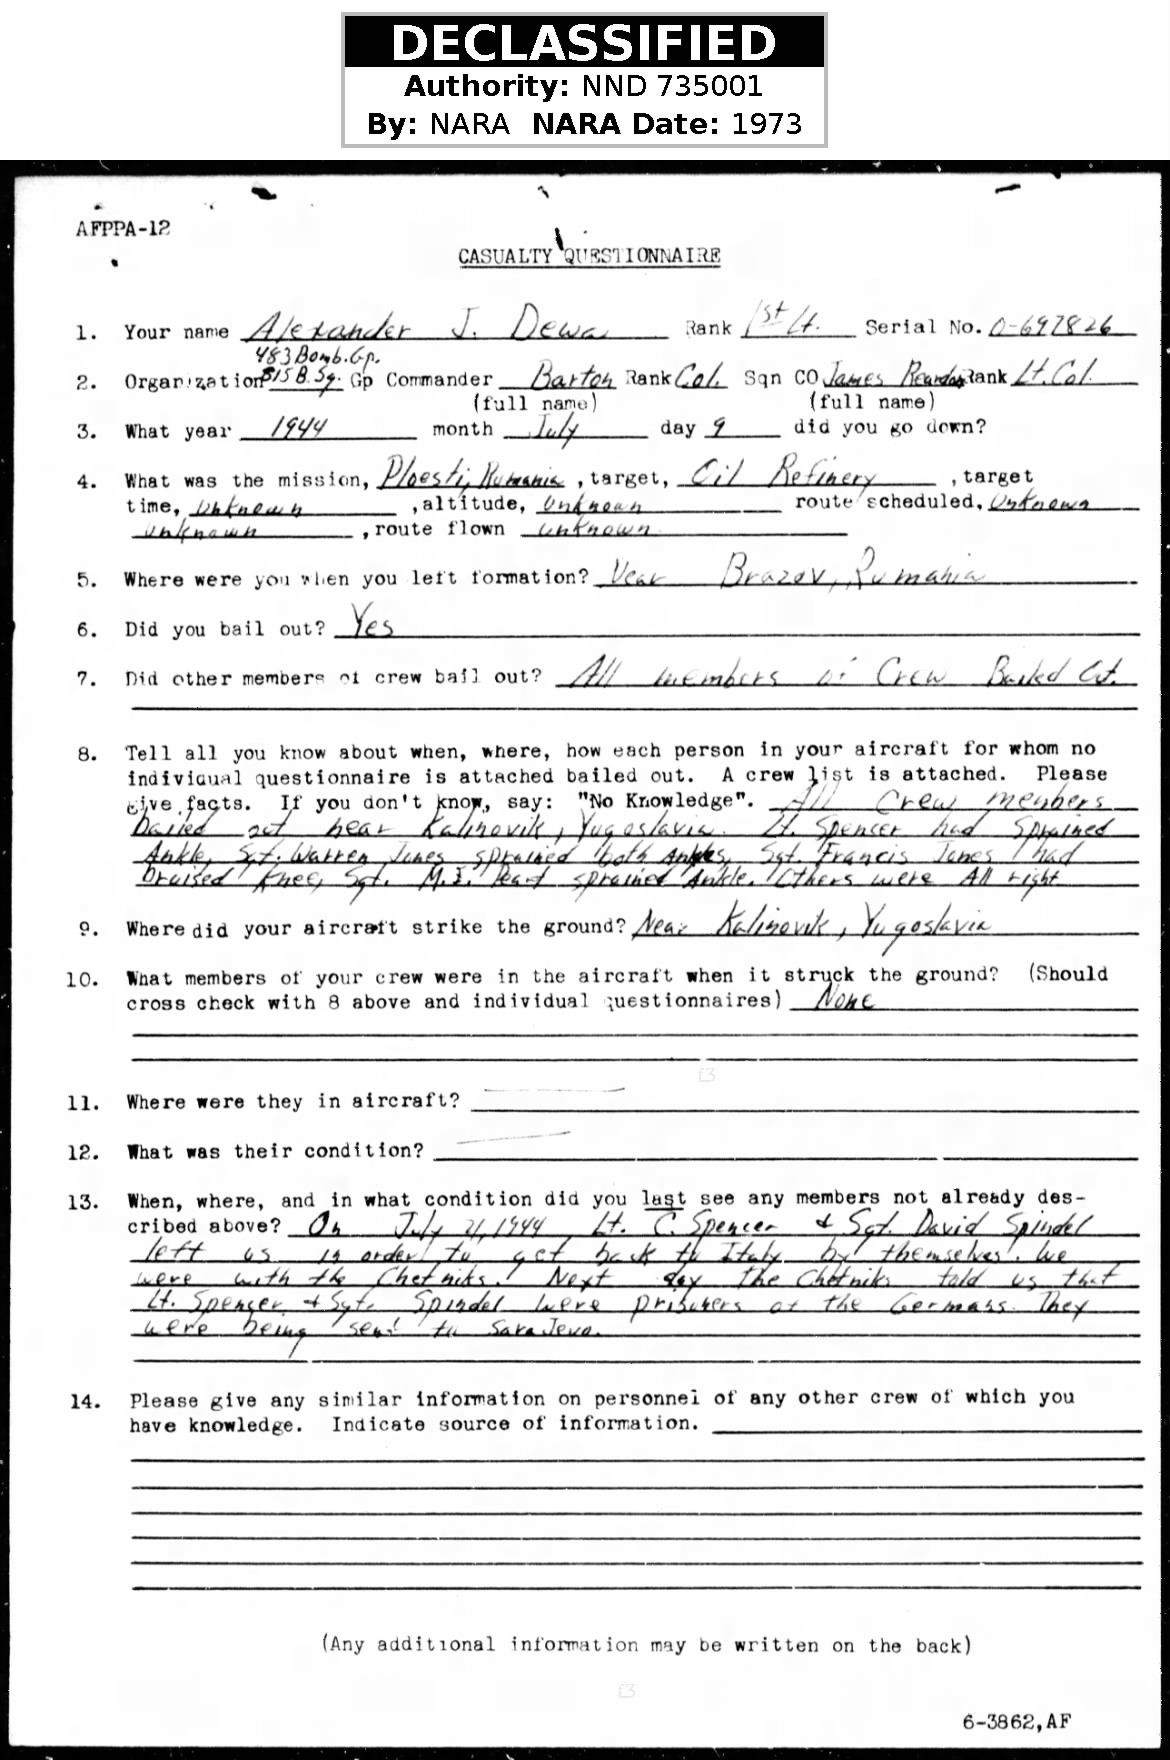 DECLASSIFIED
Authority: NND 735001
By: NARA NARA Date: 1973
AFPPA-12
CASUALTY QUESTIONNAIRE
1. Your name Alexander J. Dewa Rank 1st Lt. Serial No. O-697826
483 Bomb. Gp.
2. Organization 815 B. Sq. Gp Commander Barton Rank Col. Sqn CO James Reardon Rank Lt. Col.
(full name) (full name)
3. What year 1944 month July day 9 did you go down?
4. What was the mission, Ploesti, Rumania, target, Oil Refinery, target
time, Unknown, altitude, Unknown route scheduled, Unknown
Unknown, route flown Unknown
5. Where were you when you left formation? Near Brazov, Rumania
6. Did you bail out? Yes
7. Did other members of crew bail out? All members of Crew Bailed Out.
8. Tell all you know about when, where, how each person in your aircraft for whom no
individual questionnaire is attached bailed out. A crew list is attached. Please
give facts. If you don't know, say: "No Knowledge". All Crew members
Bailed out near Kalinovik, Yugoslavia. Lt. Spencer had Sprained
Ankle, Sgt. Warren Jones sprained both Ankles, Sgt. Francis Jones had
bruised Knee, Sgt. M.I. sprained Ankle. Others were All right
9. Where did your aircraft strike the ground? Near Kalinovik, Yugoslavia
10. What members of your crew were in the aircraft when it struck the ground? (Should
cross check with 8 above and individual questionnaires) None
11. Where were they in aircraft?
12. What was their condition?
13. When, where, and in what condition did you last see any members not already des-
cribed above? On July 21, 1944 Lt. C. Spencer & Sgt. David Spindel
left us in order to get back to Italy by themselves. We
were with the Chetniks. Next day the Chetniks told us that
Lt. Spencer & Sgt. Spindel were prisoners of the Germans. They
were being sent to Sarajevo.
14. Please give any similar information on personnel of any other crew of which you
have knowledge. Indicate source of information.
(Any additional information may be written on the back)
6-3862,AF